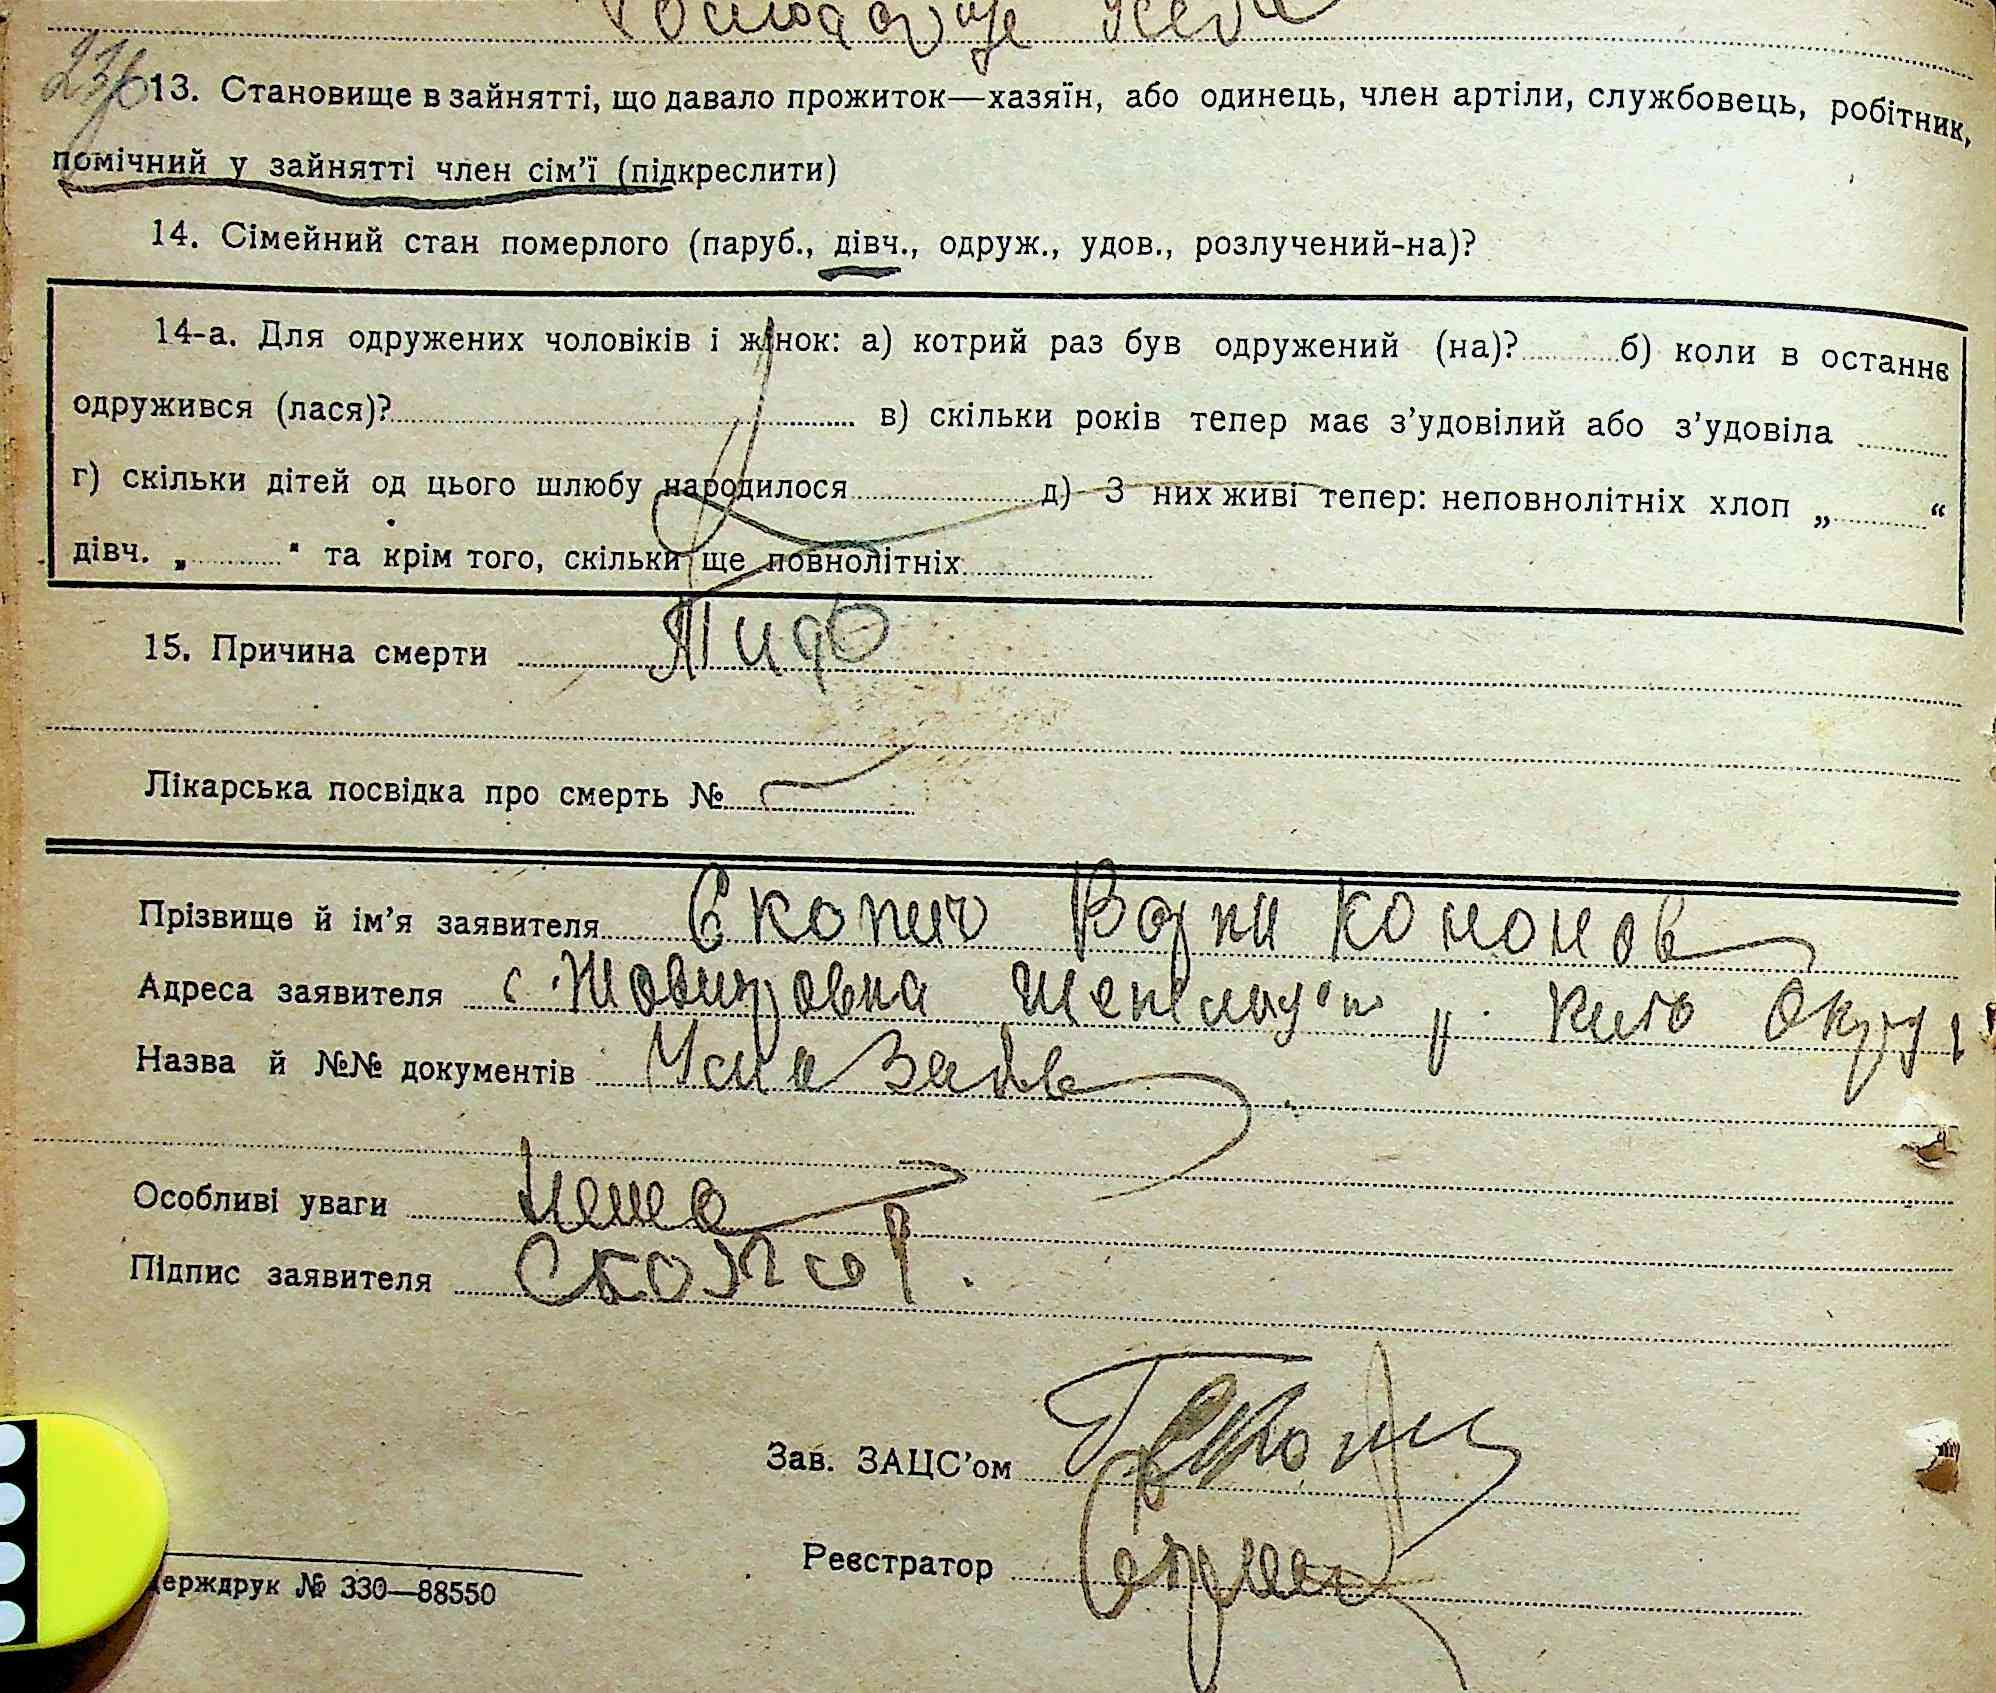 13. Становище в зайнятті, що давало прожиток—хазяїн, або одинець, член артіли, службовець, робітник,
помічний у зайнятті член сім’ї (підкреслити)
14. Сімейний стан померлого (паруб., дівч., одруж., удов., розлучений-на)?
14-а. Для одружених чоловіків і жінок: а) котрий раз був одружений (на)?..........б) коли в останнє
одружився (лася)?.......... в) скільки років тепер має з’удовілий або з’удовіла ..........
г) скільки дітей од цього шлюбу народилося.......... д) З них живі тепер: неповнолітніх хлоп „..........“
дівч. „..........“ та крім того, скільки ще повнолітніх..........
15. Причина смерти Тиф
Лікарська посвідка про смерть №
Прізвище й ім’я заявителя Скопич Кононов
Адреса заявителя с. округ
Назва й №№ документів Усна заява
Особливі уваги нема
Підпис заявителя Скопич
Зав. ЗАЦС’ом
Реєстратор
держдрук № 330—88550